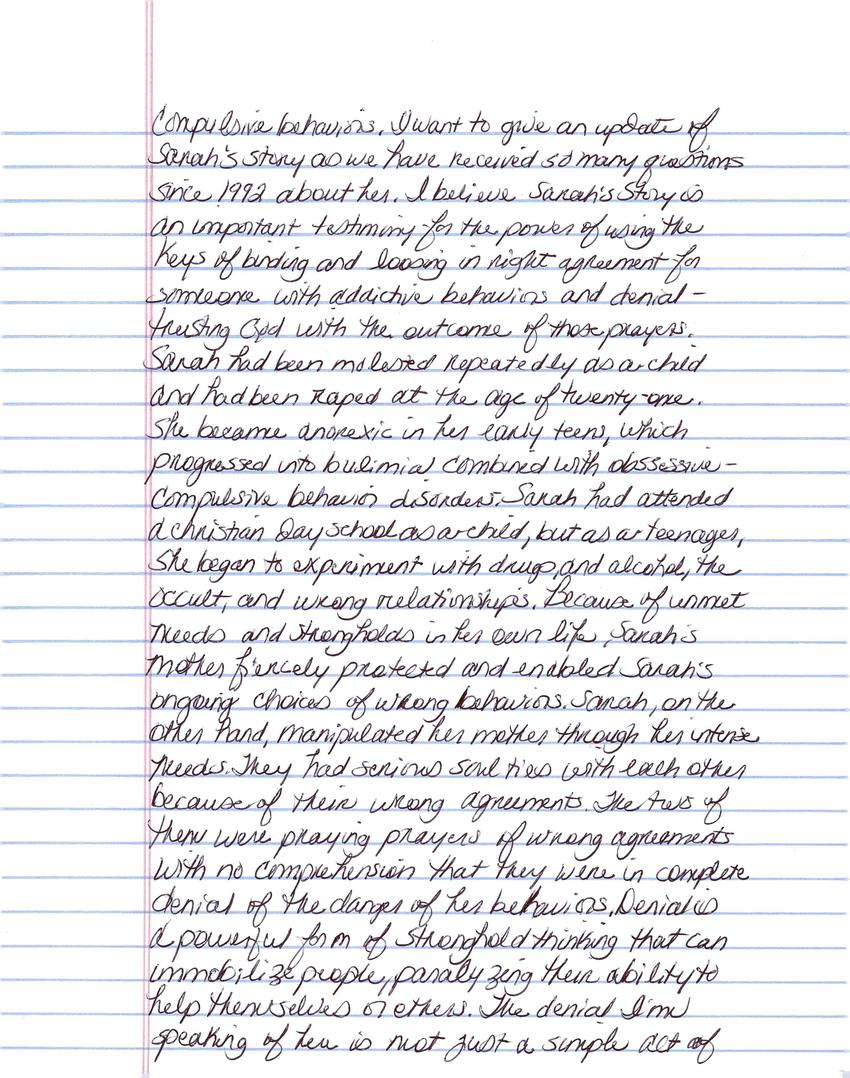 Compulsive behaviors. I want to give an update of
Sarah's story as we have received so many questions
since 1992 about her. I believe Sarah's Story is
an important testimony for the power of using the
Keys of binding and loosing in right agreement for
someone with addictive behaviors and denial -
trusting God with the outcome of those prayers.
Sarah had been molested repeatedly as a child
and had been raped at the age of twenty-one.
She became anorexic in her early teens, which
progressed into bulimia combined with obssessive-
Compulsive behavior disorders. Sarah had attended
a christian Day school as a child, but as a teenager,
She began to experiment with drugs, and alcohol, the
occult, and wrong relationships. Because of unmet
needs and strongholds in her own life, Sarah's
mother fiercely protected and enabled Sarah's
ongoing choices of wrong behaviors. Sarah, on the
other hand, manipulated her mother through her intense
needs. They had serious soul ties with each other
because of their wrong agreements. The two of
them were praying prayers of wrong agreements
with no comprehension that they were in complete
denial of the danger of her behaviors. Denial is
a powerful form of stronghold thinking that can
immobilize people, paralyzing their ability to
help themselves or others. The denial I'm
speaking of here is not just a simple act of